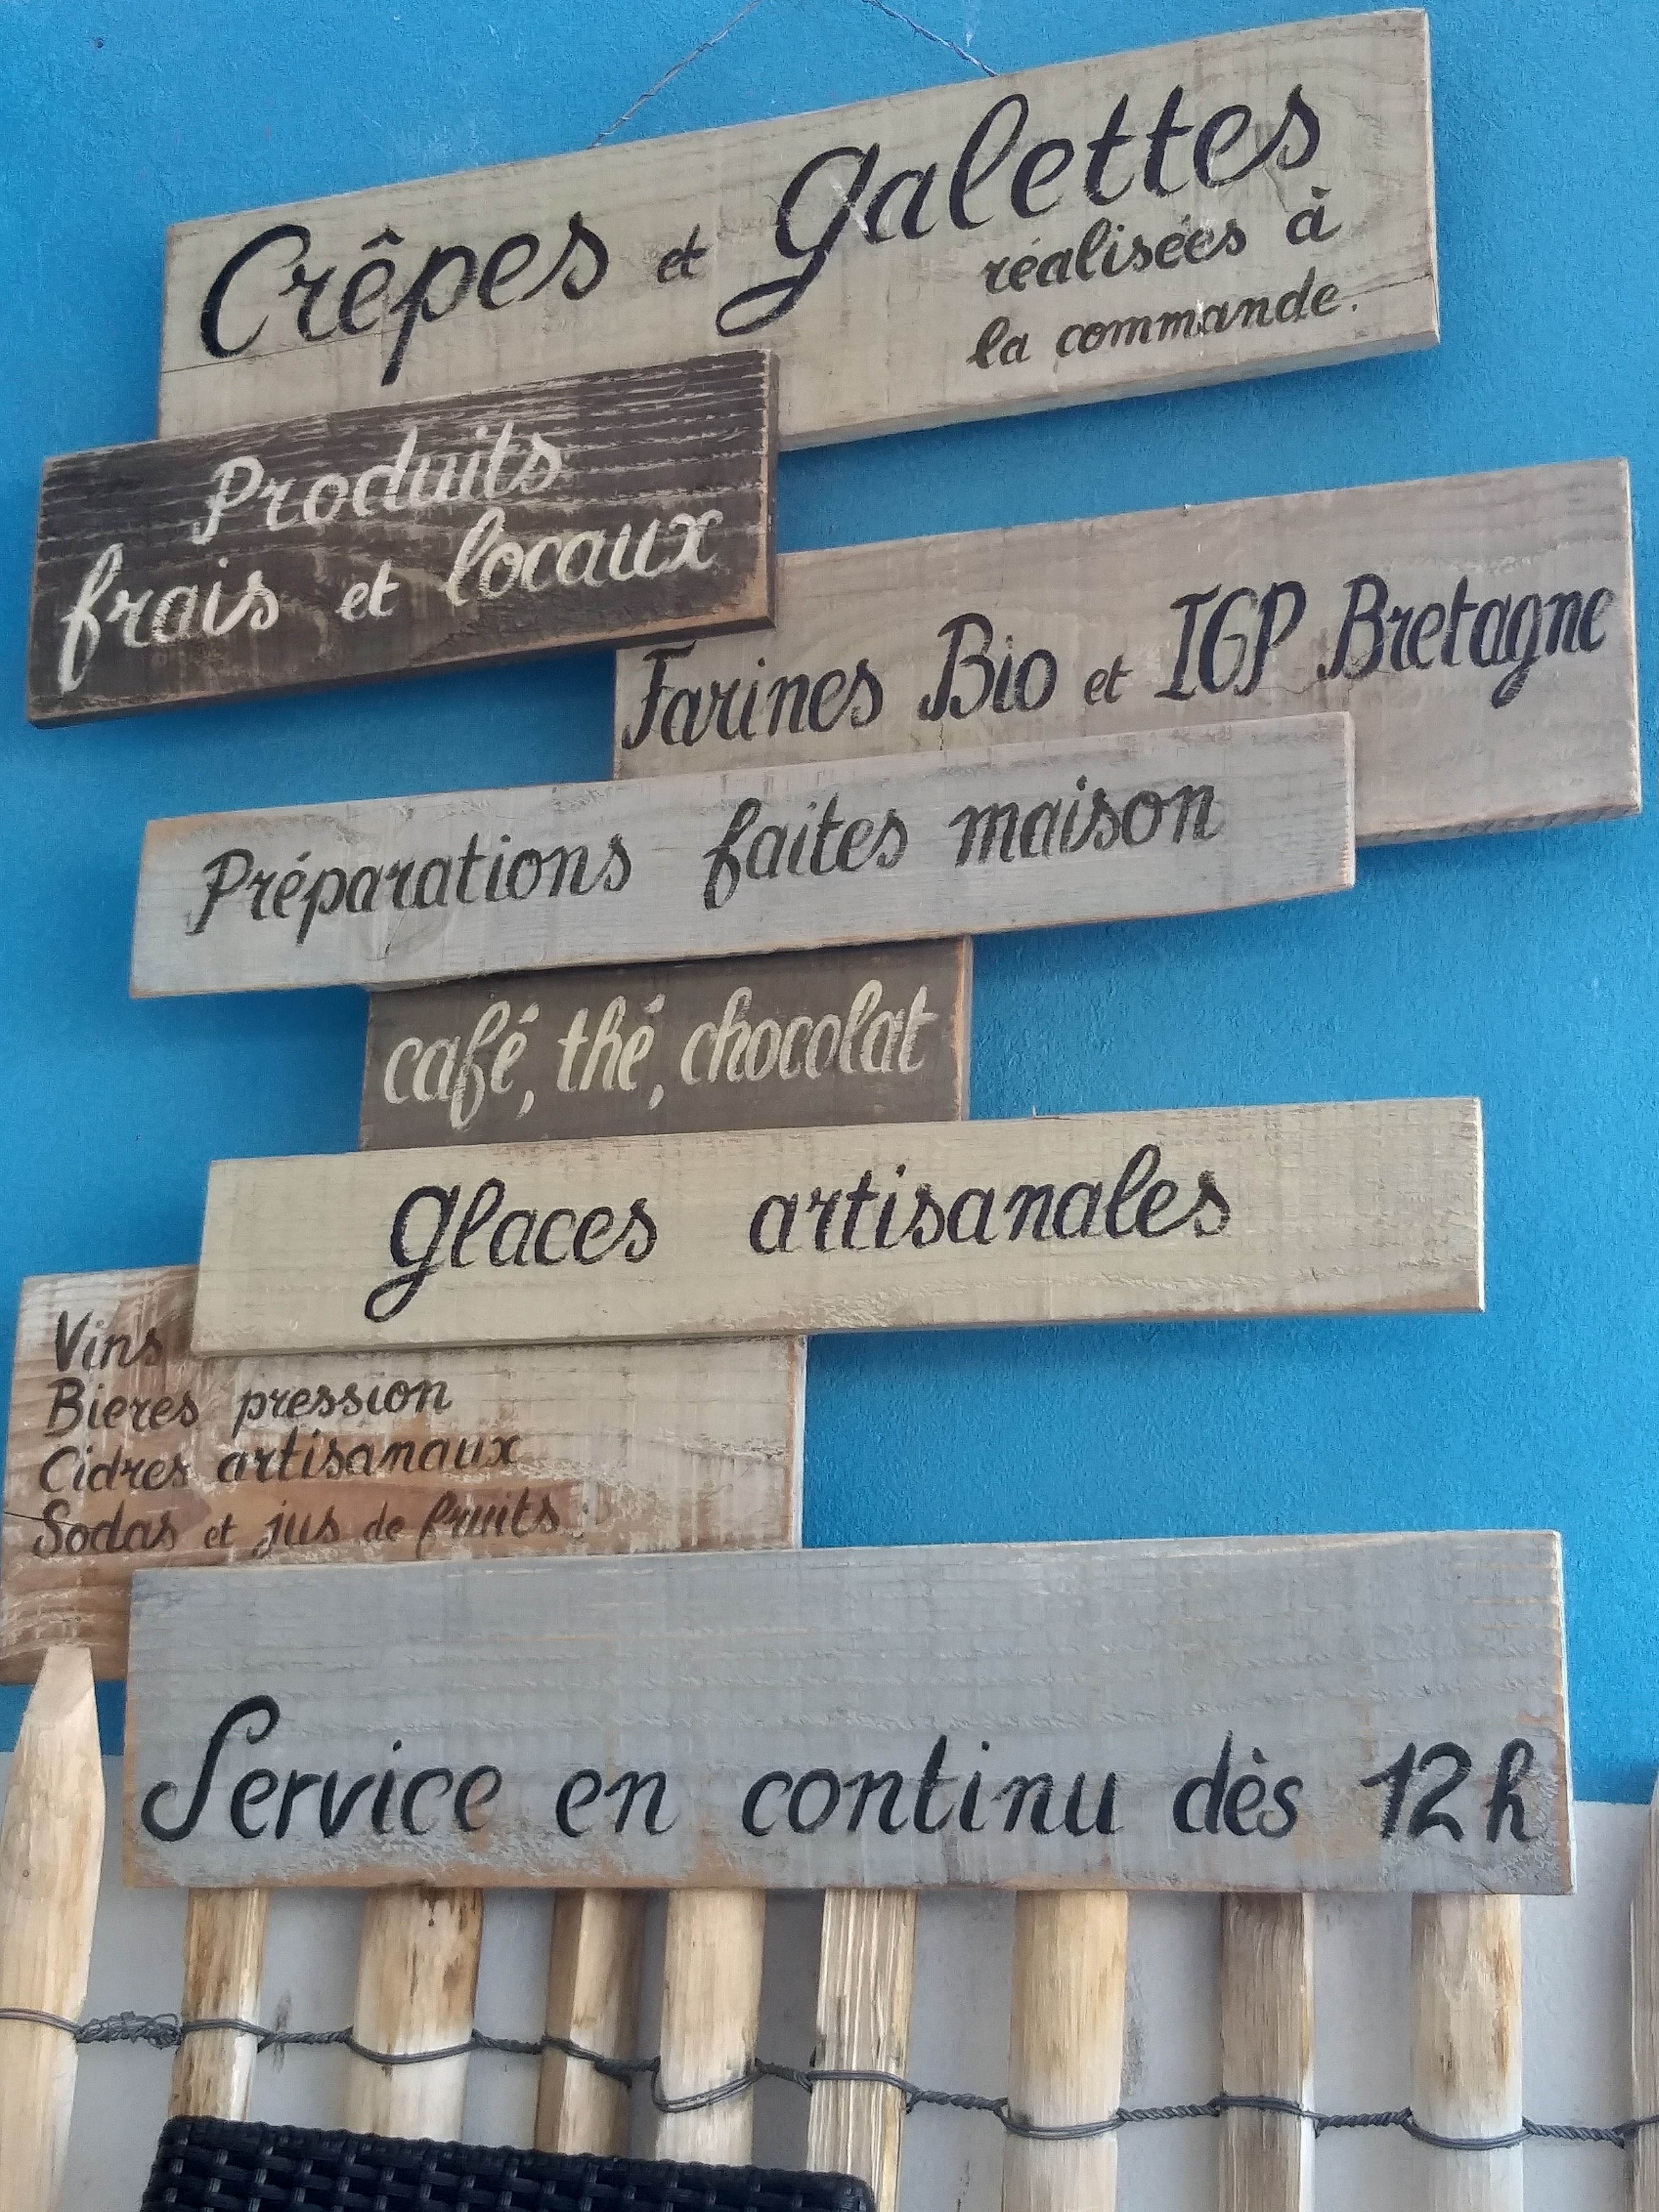 Crêpes et Galettes
réalisées à
la commande.
Produits
frais et locaux
Farines Bio et IGP Bretagne
Préparations faites maison
café, thé, chocolat
Glaces artisanales
Vins
Bieres pression
Cidres artisanaux
Sodas et jus de fruits
Service en continu dès 12h